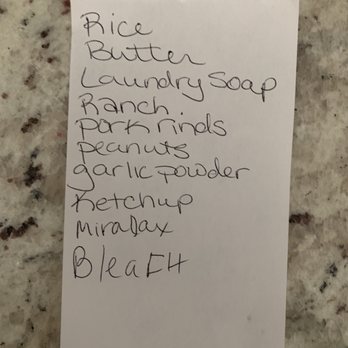 Rice
Butter
Laundry Soap
Ranch
pork rinds
peanuts
garlic powder
Ketchup
Miralax
BleaCH